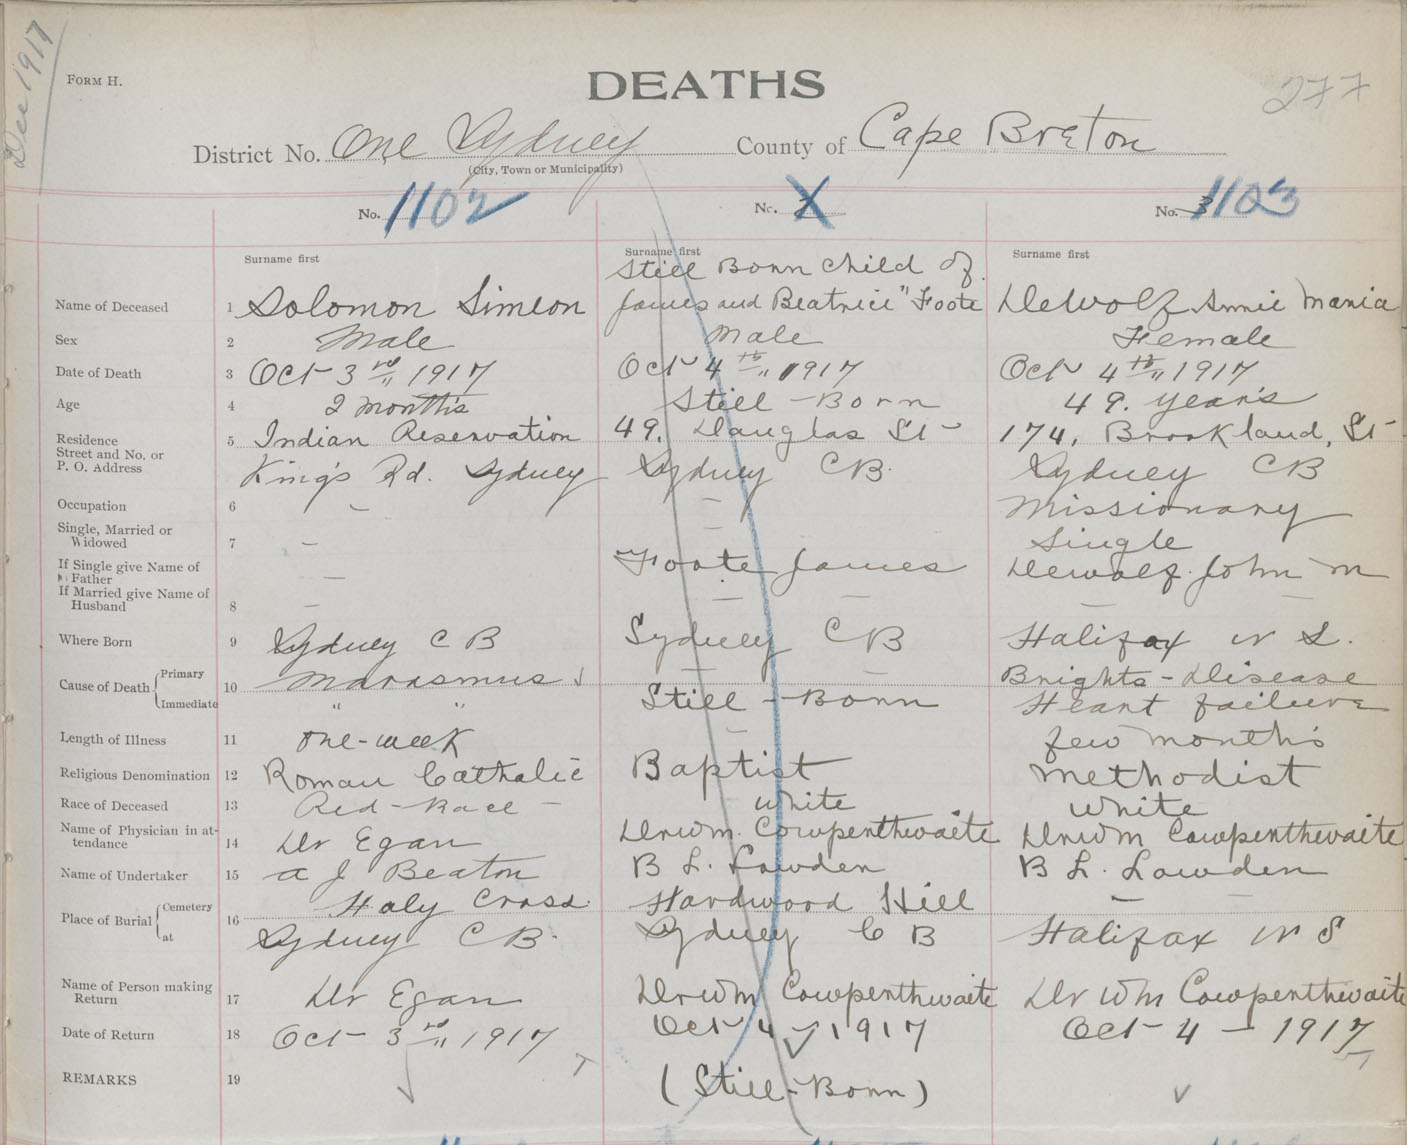 Dec 1917
FORM H.
DEATHS
277
District No. One Sydney County of Cape Breton
(City, Town or Municipality)
No. 1102 No. X No. 1103
Surname first Surname first Surname first
Still Born child of
Name of Deceased 1 Solomon Simeon James and Beatrice " Foote DeWolf Annie Maria
Sex 2 Male Male Female
Date of Death 3 Oct 3rd " 1917 Oct 4th " 1917 Oct 4th " 1917
Age 4 2 months Still-Born 49. years
Residence Street and No. or P. O. Address 5 Indian Reservation 49, Douglas St 174, Brookland, St
King's Rd. Sydney Sydney CB. Sydney CB
Occupation 6 - - Missionary
Single, Married or Widowed 7 - - Single
If Single give Name of Father - Foote James Dewolf. John M
If Married give Name of Husband 8 - - -
Where Born 9 Sydney CB Sydney CB Halifax N S.
Cause of Death Primary 10 Marasmus - - Brights-Disease
Immediate " " Still-Born Heart failure
Length of Illness 11 one-week - few months
Religious Denomination 12 Roman Catholic Baptist Methodist
Race of Deceased 13 Red-Race - White White
Name of Physician in attendance 14 Dr Egan Dr Wm. Cowpenthwaite Dr Wm Cowpenthwaite
Name of Undertaker 15 A J Beaton B L. Lowden B L. Lowden
Place of Burial Cemetery 16 Holy Cross. Hardwood Hill - -
at Sydney CB. Sydney C B Halifax N S
Name of Person making Return 17 Dr Egan Dr Wm Cowpenthwaite Dr Wm Cowpenthwaite
Date of Return 18 Oct 3rd " 1917 Oct 4 1917 Oct 4 - 1917
REMARKS 19 (Still-Born)